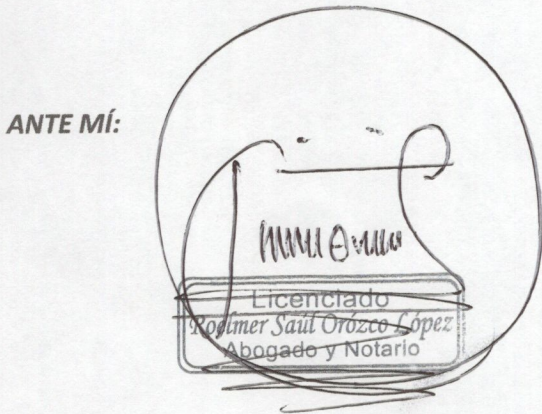 ANTE MÍ:
Licenciado
Roelmer Saúl Orózco López
Abogado y Notario